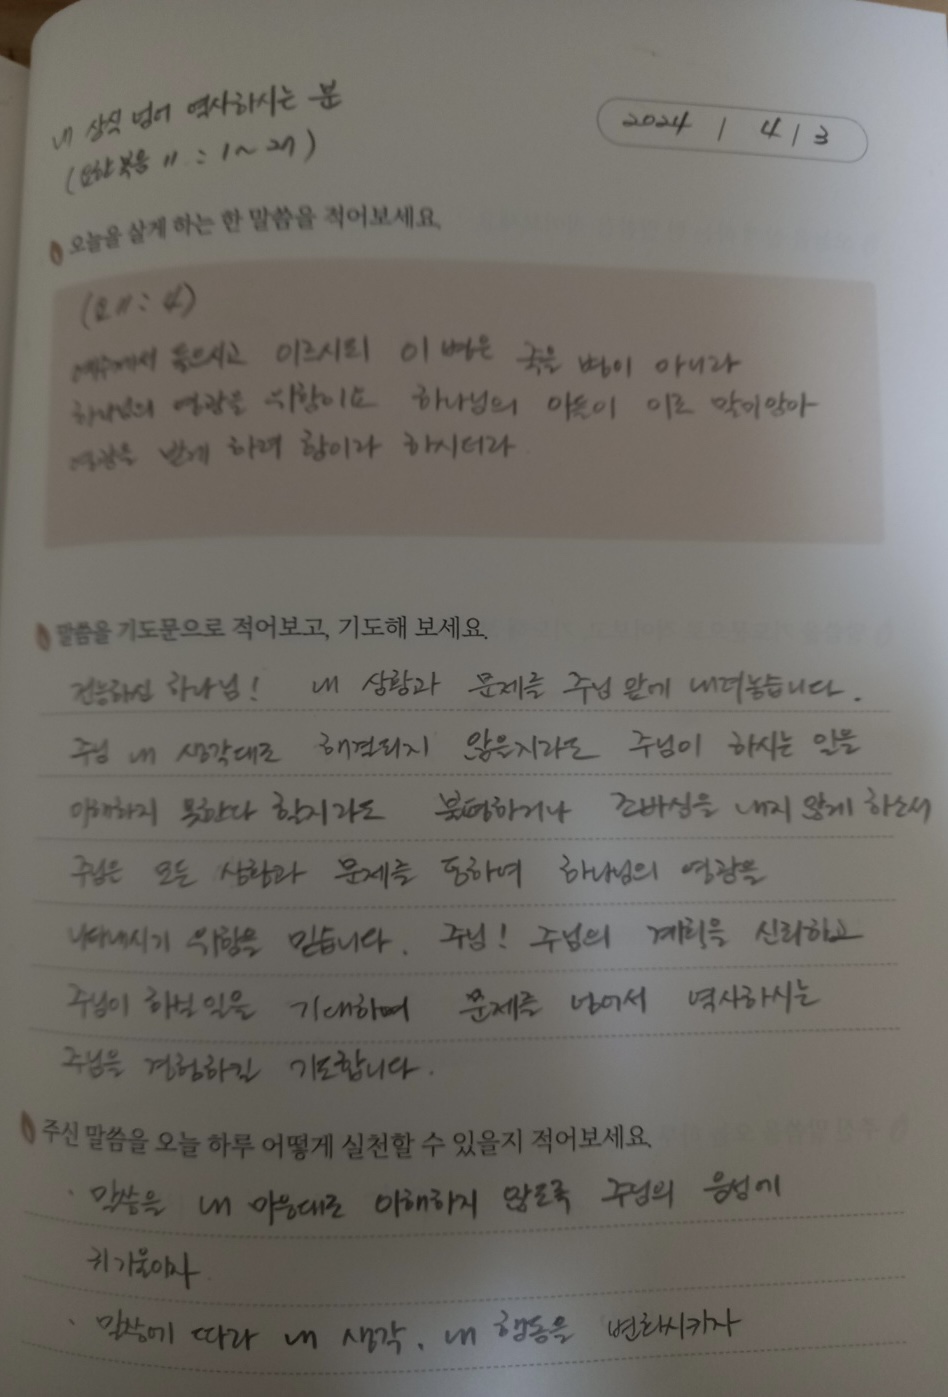 내 상식 넘어 역사하시는 분
2024 / 4 / 3
(요한복음 11 : 1~27)
오늘을 살게 하는 한 말씀을 적어보세요.
(요 11 : 4)
예수께서 들으시고 이르시되 이 병은 죽을 병이 아니라
하나님의 영광을 위함이요 하나님의 아들이 이로 말미암아
영광을 받게 하려 함이라 하시더라
말씀을 기도문으로 적어보고, 기도해 보세요.
전능하신 하나님! 내 상황과 문제를 주님 앞에 내려놓습니다.
주님 내 생각대로 해결되지 않은지라도 주님이 하시는 일을
이해하지 못한다 할지라도 불평하거나 조바심을 내지 않게 하소서
주님은 모든 상황과 문제를 통하여 하나님의 영광을
나타내시기 위함을 믿습니다. 주님! 주님의 계획을 신뢰하고
주님이 하실 일을 기대하며 문제를 넘어서 역사하시는
주님을 경험하길 기도합니다.
주신 말씀을 오늘 하루 어떻게 실천할 수 있을지 적어보세요.
· 말씀을 내 마음대로 이해하지 않도록 주님의 음성에
귀 기울이자
· 말씀에 따라 내 생각, 내 행동을 변화시키자